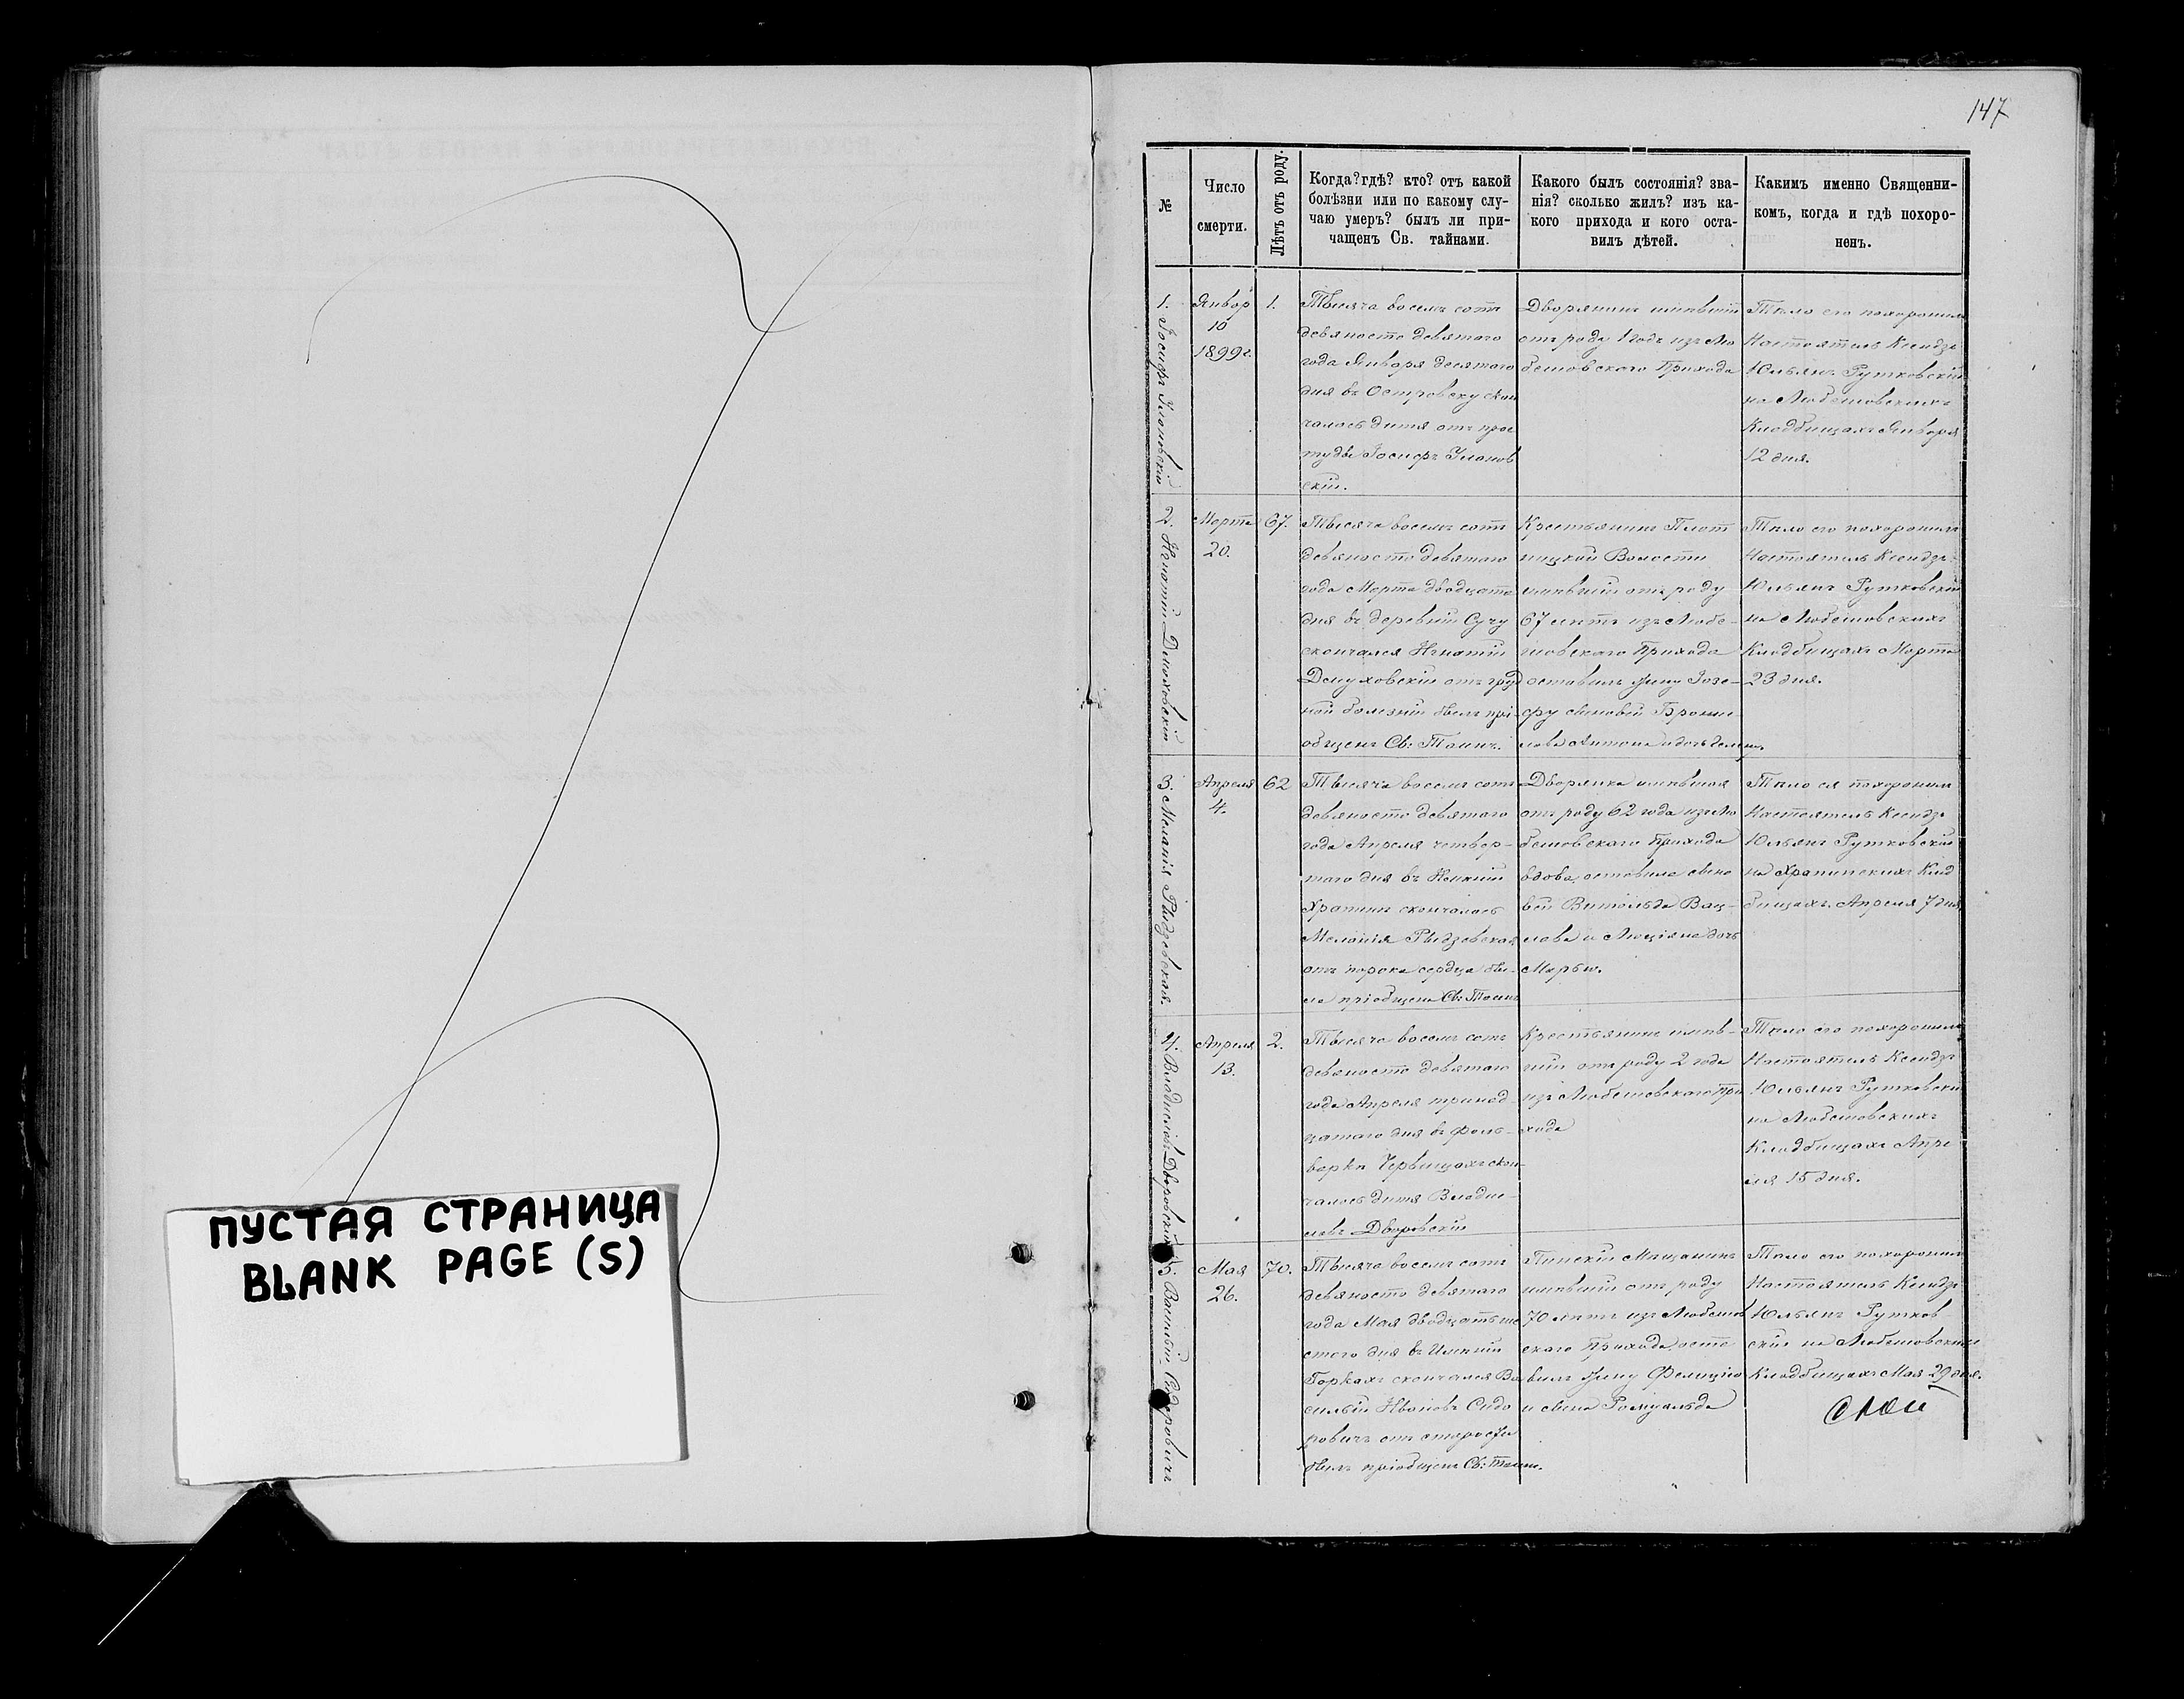 ПУСТАЯ СТРАНИЦА
BLANK PAGE (S)
147
№
Число
смерти.
Лѣтъ отъ роду.
Когда? гдѣ? кто? отъ какой
болѣзни или по какому слу-
чаю умеръ? былъ ли при-
чащенъ Св. тайнами.
Какого былъ состоянія? зва-
нія? сколько жилъ? изъ ка-
кого прихода и кого оста-
вилъ дѣтей.
Какимъ именно Священни-
комъ, когда и гдѣ похоро-
ненъ.
1. Іосифъ
Январ
10
1899г.
1.
Тысяча восемь сотъ
девяносто девятаго
года Января десятаго
дня въ Островску скон
чалось дитя отъ прос
туды Іосифъ
скій.
Дворянинъ имѣвшій
отъ роду 1 годъ изъ Лю
бешовскаго Прихода
Тѣло его похоронилъ
Настоятель Ксендзъ
Юльянъ Рутковскій
на Любешовскихъ
Кладбищахъ Января
12 дня.
2. Игнатій
Марта
20.
67.
Тысяча восемь сотъ
девяносто девятаго
года Марта двадцата
дня въ деревни Сучу
скончался Игнатій
отъ груд
ной болезніи былъ прі-
общенъ Св: Таинъ.
Крестьянинъ Плот
ницкой Волости
имѣвшій отъ роду
67 лѣтъ изъ Любе-
шовскаго Прихода
оставилъ жену Іозе-
фу сыновей Брони-
слава Антона и дочь
Тѣло его похоронилъ
Настоятель Ксендзъ
Юльянъ Рутковскій
на Любешовскихъ
Кладбищахъ Марта
23 дня.
3. Меланія Рыдзевская.
Апреля
4.
62
Тысяча восемь сотъ
девяносто девятаго
года Апреля четвер-
таго дня въ Имѣніи
Храпинъ скончалась
Меланія Рыдзевская
отъ порока сердца бы-
ла пріобщена Св: Таинъ
Дворянка имѣвшая
отъ роду 62 года изъ Лю
бешовскаго Прихода
вдова, оставила сыно
вей Витольда Вац-
лава и Люціяна дочь
Марью.
Тѣло ея похоронилъ
Настоятель Ксендзъ
Юльянъ Рутковскій
на Храпинскихъ Клад
бищахъ Апреля 7 дня
4. Владиславъ Дворовскій
Апреля
13.
2.
Тысяча восемь сотъ
девяносто девятаго
года Апреля тринад
цатаго дня въ Фоль-
варкѣ Червищахъ скон-
чалось дитя Владис-
лавъ Дворовскій
Крестьянинъ имѣв-
шій отъ роду 2 года
изъ Любешовскаго При
хода
Тѣло его похоронилъ
Настоятель Ксендзъ
Юльянъ Рутковскій
на Любешовскихъ
Кладбищахъ Апре
ля 15 дня.
5. Василій Сидоровичъ
Мая
26.
70.
Тысяча восемь сотъ
девяносто девятаго
года Мая двадцать ше
стого дня въ Имѣніи
Горкахъ скончался Ва
силій Ивановъ Сидо
ровичъ отъ старости
былъ пріобщенъ Св: Таин.
Пинскій Мѣщанинъ
имѣвшій отъ роду
70 лѣтъ изъ Любешов
скаго Прихода, оста
вилъ жену Фелицію
и сына Ромуальда
Тѣло его похоронилъ
Настоятель Ксендзъ
Юльянъ Рутков-
скій на Любешовскихъ
Кладбищахъ Мая 29 дня.